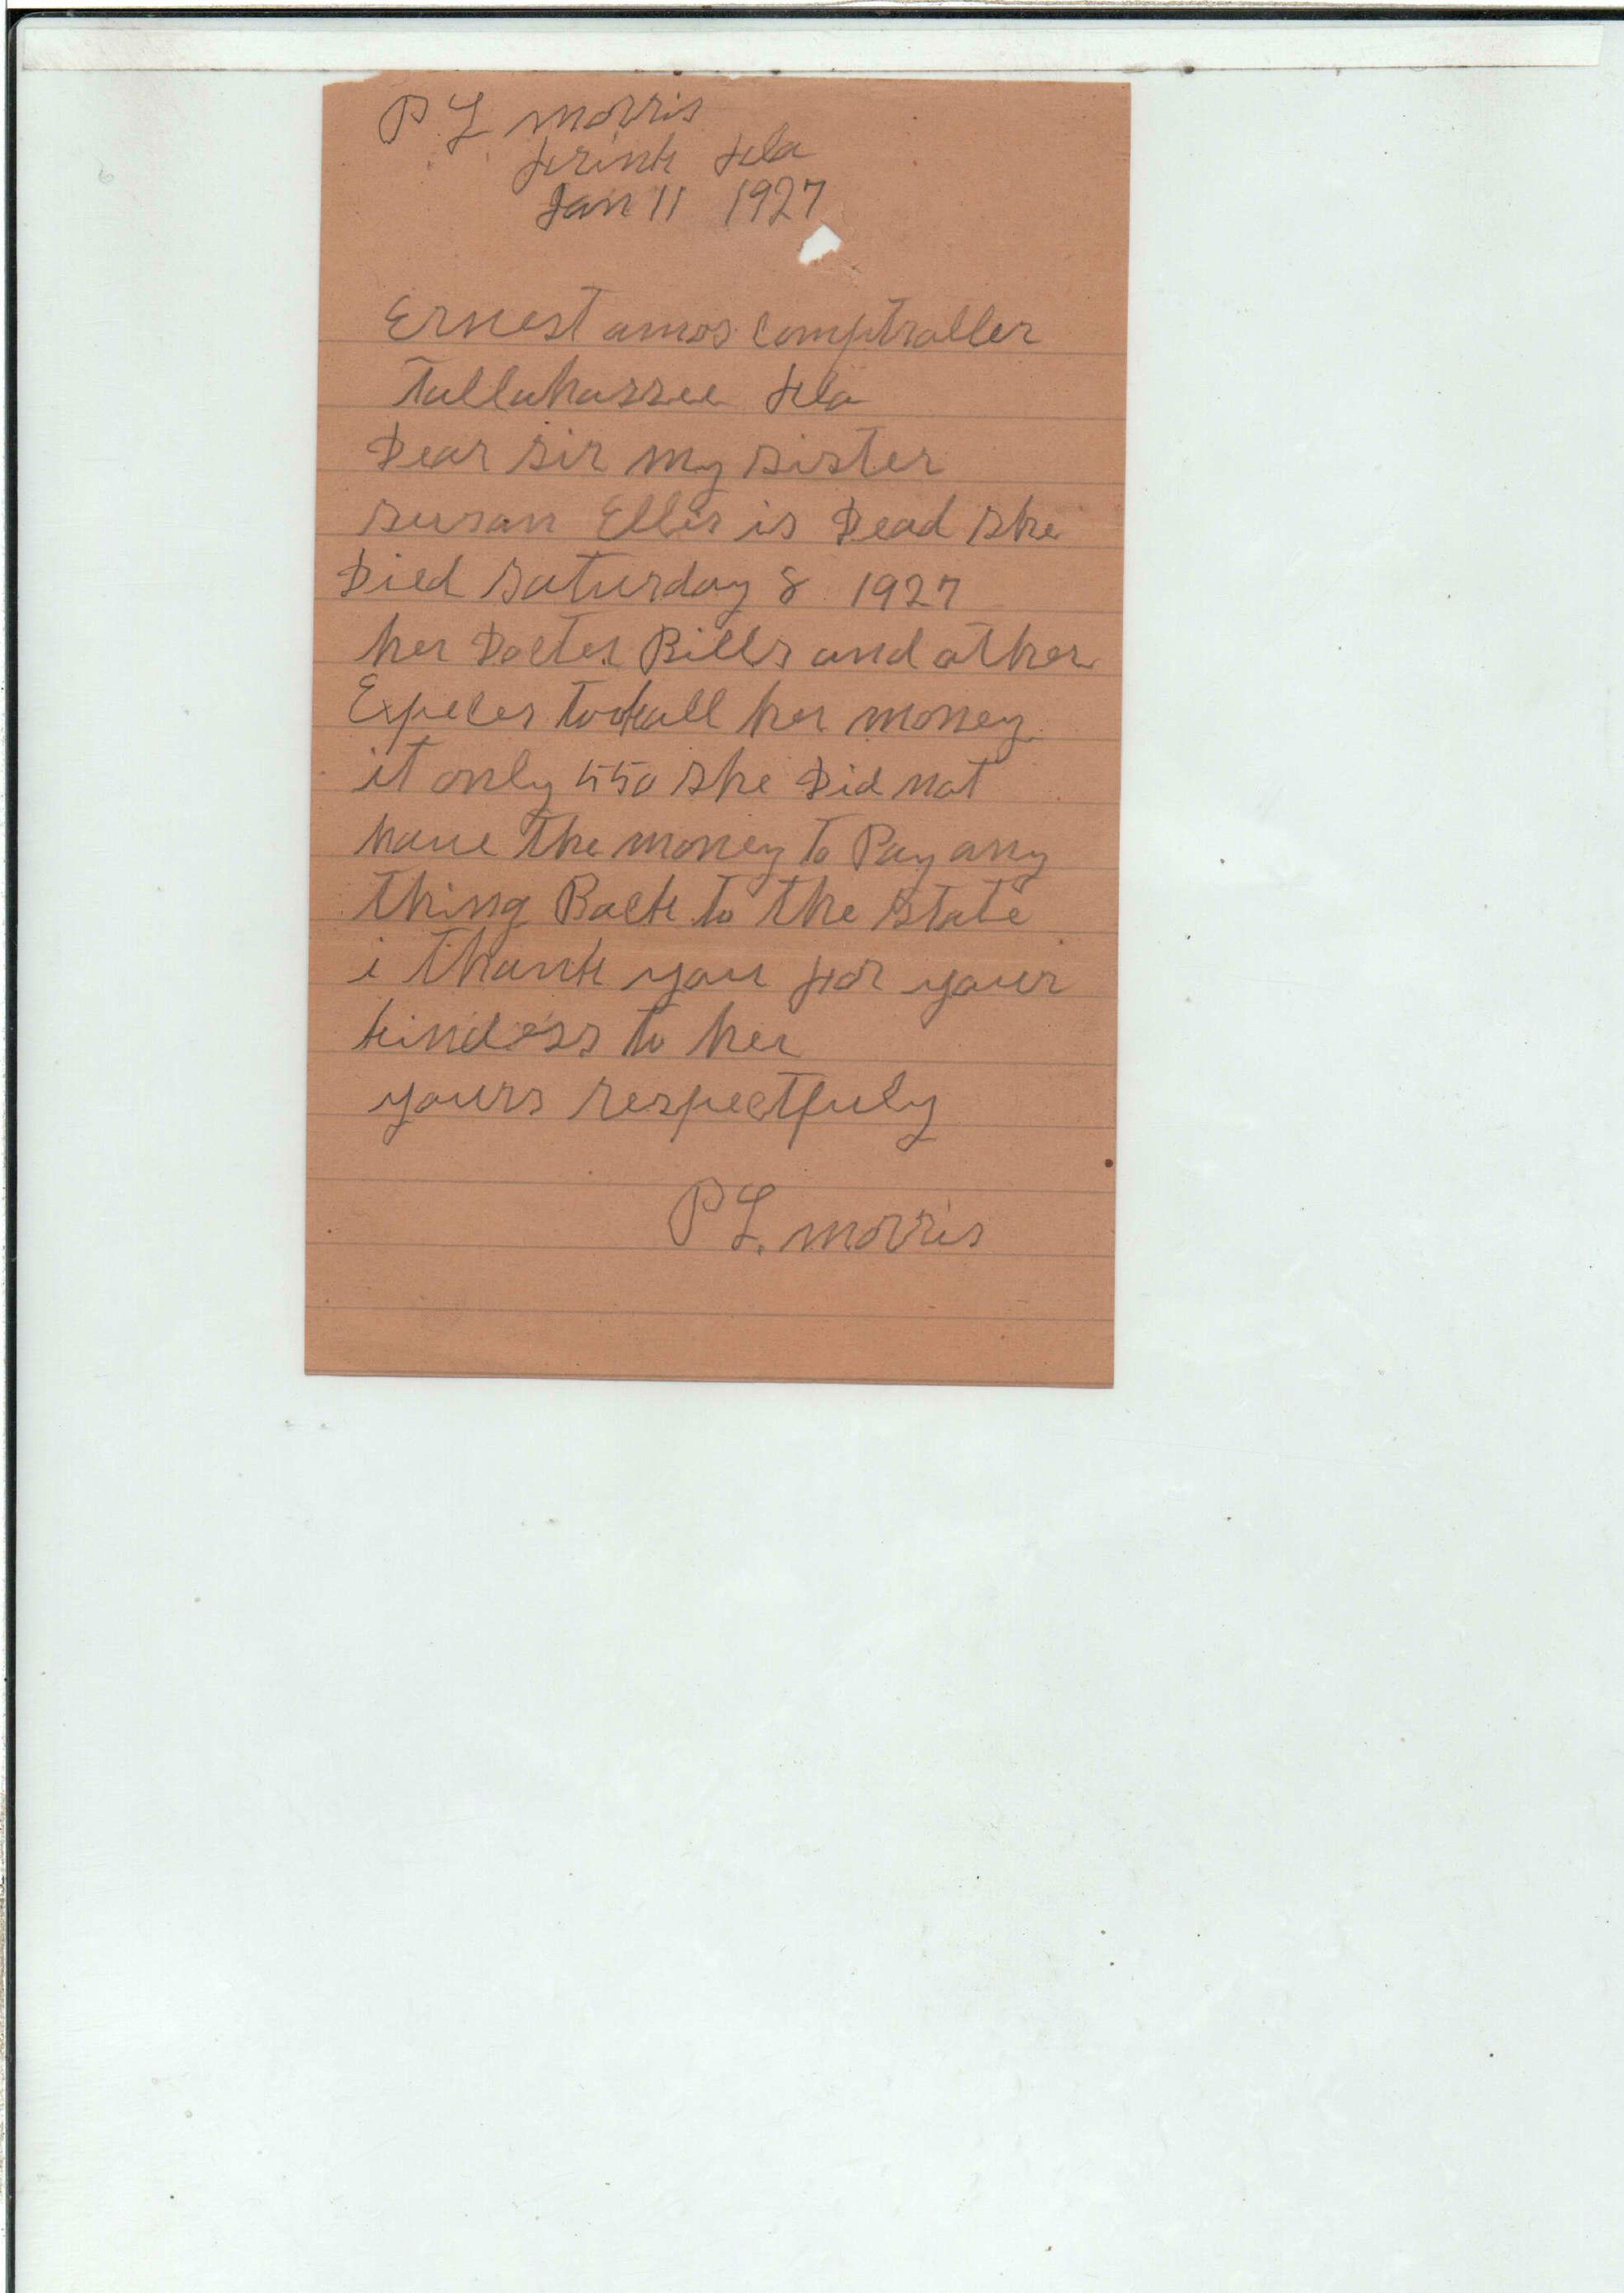 P. L. morris
frink fla
Jan 11 1927
Ernest amos comptroller
Tallahassee fla
Dear sir my sister
susan Ellis is Dead she
Died saturday 8 1927
her Docter Bills and other
Expeces took all her money
it only 550 she Did not
have the money to Pay any
thing Back to the state
i thank you for your
kindess to her
yours respectfuly
P L. morris